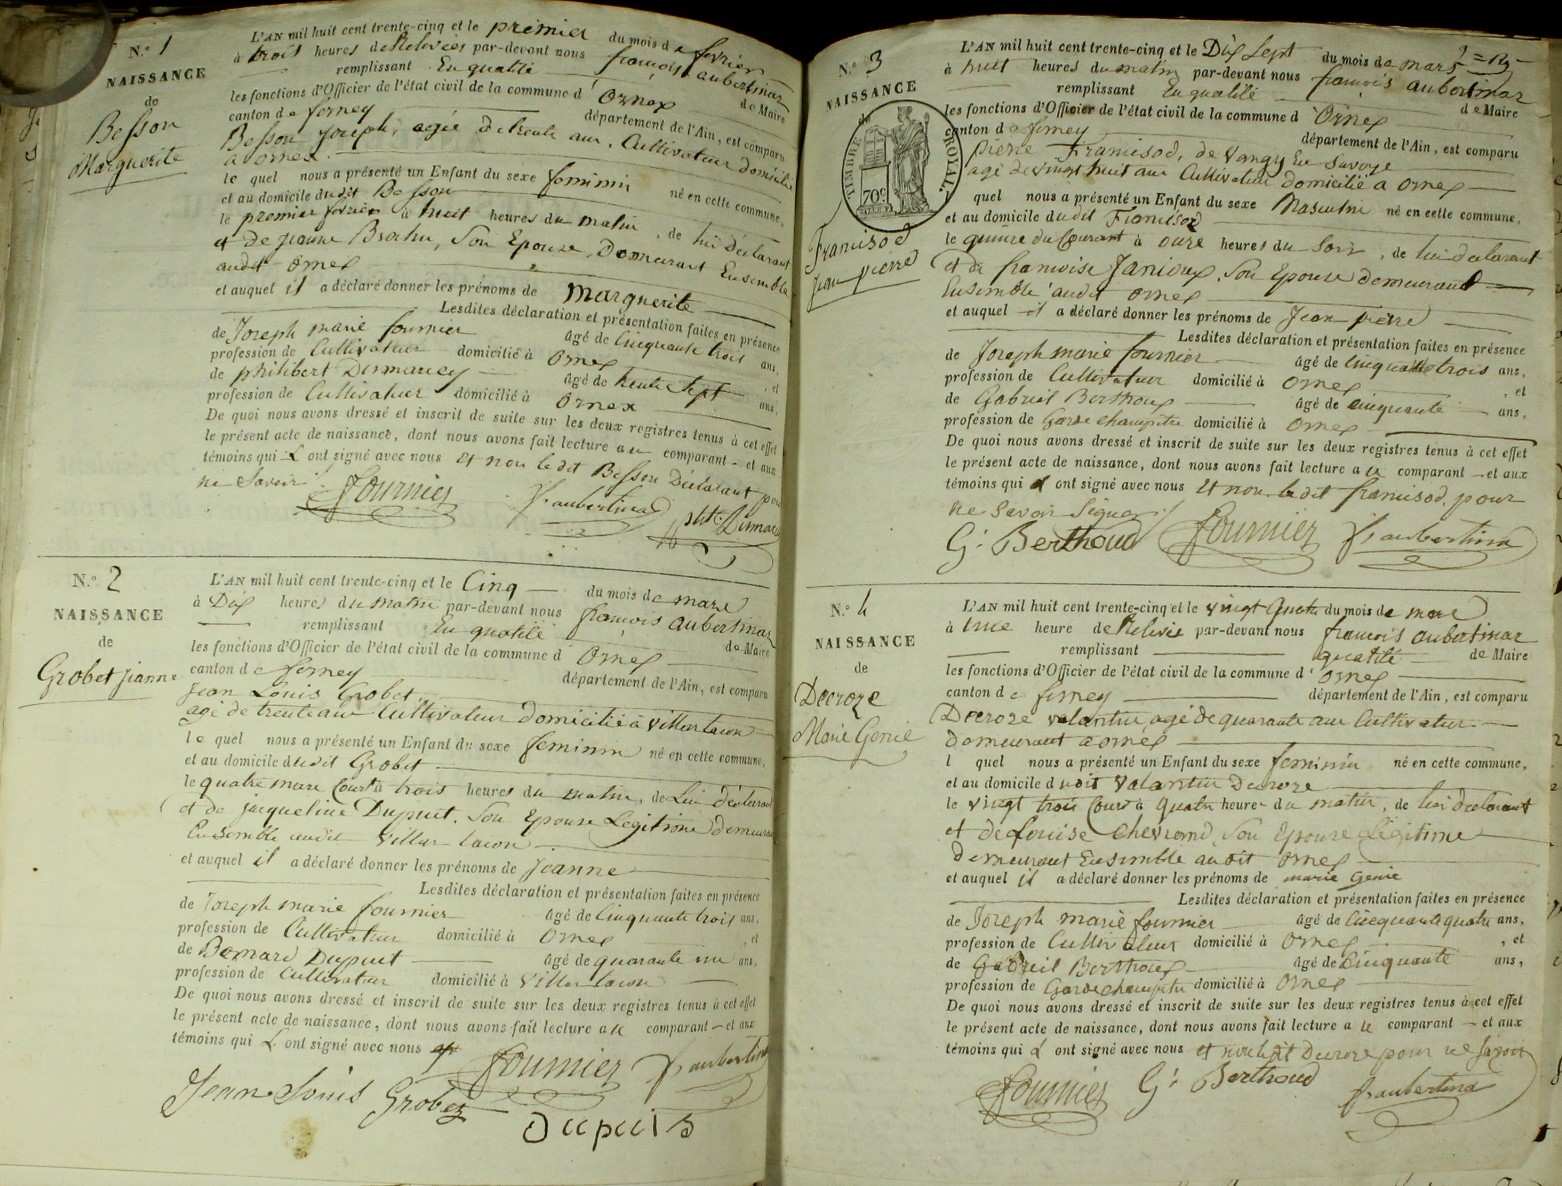 N.° 1
NAISSANCE
de
Besson
Marguerite
L'AN mil huit cent trente-cinq et le premier du mois de fevrier
à trois heures de Relevée par-devant nous françois aubertinaz
remplissant En qualité de Maire
les fonctions d'Officier de l'état civil de la commune d'Ornex
canton de ferney département de l'Ain, est comparu
Besson joseph, agée de trente ans, Cultivateur domicilié
a ornex.
le quel nous a présenté un Enfant du sexe feminin né en cette commune,
et au domicile dudit Besson
le premier fevrier à huit heures du matin, de lui déclarant
et De jeanne Son Epouse, Demeurant Ensemble
audit ornex
et auquel il a déclaré donner les prénoms de Marguerite
Lesdites déclaration et présentation faites en présence
de Joseph marie fournier âgé de Cinquante trois ans,
profession de Cultivateur domicilié à Ornex, et
de philibert Dismarey âgé de trente Sept ans,
profession de Cultivateur domicilié à Ornex
De quoi nous avons dressé et inscrit de suite sur les deux registres tenus à cet effet
le présent acte de naissance, dont nous avons fait lecture au comparant et aux
témoins qui ont signé avec nous et non le dit Besson Déclarant pour
ne Savoir.
Fournier f aubertinaz
N.° 2
NAISSANCE
de
Grobet jeanne
L'AN mil huit cent trente-cinq et le Cinq du mois de mars
à Dix heures du matin par-devant nous françois aubertinaz
remplissant En qualité de Maire
les fonctions d'Officier de l'état civil de la commune d'Ornex
canton de ferney département de l'Ain, est comparu
Jean Louis Grobet
agé de trente ans Cultivateur domicilié à Villar tacon
le quel nous a présenté un Enfant du sexe feminin né en cette commune,
et au domicile dudit Grobet
le quatre mars Court à trois heures du matin, de Lui déclarant
et de jacqueline Dupuit, Son Epouse Legitime demeurant
Ensemble audit Villar tacon
et auquel il a déclaré donner les prénoms de Jeanne
Lesdites déclaration et présentation faites en présence
de Joseph marie fournier âgé de Cinquante trois ans,
profession de Cultivateur domicilié à Ornex, et
de Bernard Dupuit âgé de quarante un ans,
profession de Cultivateur domicilié à Villar tacon
De quoi nous avons dressé et inscrit de suite sur les deux registres tenus à cet effet
le présent acte de naissance, dont nous avons fait lecture au comparant et aux
témoins qui ont signé avec nous
Fournier f aubertinaz
Jean Louis Grobet
Dupuis
N.° 3
NAISSANCE
de
TIMBRE ROYAL
70c
Francisod
jean pierre
L'AN mil huit cent trente-cinq et le Dix Sept du mois de mars
à huit heures du matin par-devant nous françois aubertinaz
remplissant En qualité de Maire
les fonctions d'Officier de l'état civil de la commune d'Ornex
canton de ferney département de l'Ain, est comparu
Pierre Francisod, de Vangy En Savoye
agé de vingt huit ans Cultivateur domicilié a Ornex
quel nous a présenté un Enfant du sexe Masculin né en cette commune,
et au domicile dudit Francisod
le quinze du Courant à onze heures du Soir, de lui declarant
et de françoise Janioux, Son Epouse demeurant
Ensemble audit Ornex
et auquel il a déclaré donner les prénoms de Jean pierre
Lesdites déclaration et présentation faites en présence
de Joseph marie fournier âgé de cinquante trois ans,
profession de Cultivateur domicilié à Ornex, et
de Gabriel Berthoux âgé de cinquante ans,
profession de Garde champêtre domicilié à Ornex
De quoi nous avons dressé et inscrit de suite sur les deux registres tenus à cet effet
le présent acte de naissance, dont nous avons fait lecture au comparant et aux
témoins qui ont signé avec nous et non le dit francisod, pour
ne Savoir Signer
G. Berthoud Fournier f aubertinaz
N.° 4
NAISSANCE
de
Decroze
Marie Genie
L'AN mil huit cent trente-cinq et le vingt Quatre du mois de mars
à une heure de Relevée par-devant nous françois aubertinaz
remplissant qualité de Maire
les fonctions d'Officier de l'état civil de la commune d'Ornex
canton de ferney département de l'Ain, est comparu
Decroze valentin agé de quarante ans Cultivateur
Demeurant a ornex
l quel nous a présenté un Enfant du sexe feminin né en cette commune,
et au domicile dudit Valentin Decroze
le vingt trois Court à Quatre heures du matin, de lui declarant
et de Louise Son Epouse Légitime
Demeurant Ensemble audit Ornex
et auquel il a déclaré donner les prénoms de marie Genie
Lesdites déclaration et présentation faites en présence
de Joseph marie fournier âgé de Cincquante quatre ans,
profession de Cultivateur domicilié à Ornex, et
de Gabriel Berthoux âgé de Cinquante ans,
profession de Garde champetre domicilié à Ornex
De quoi nous avons dressé et inscrit de suite sur les deux registres tenus à cet effet
le présent acte de naissance, dont nous avons fait lecture au comparant et aux
témoins qui ont signé avec nous et non ledit Decroze pour ne Savoir
Fournier G. Berthoud f aubertinaz